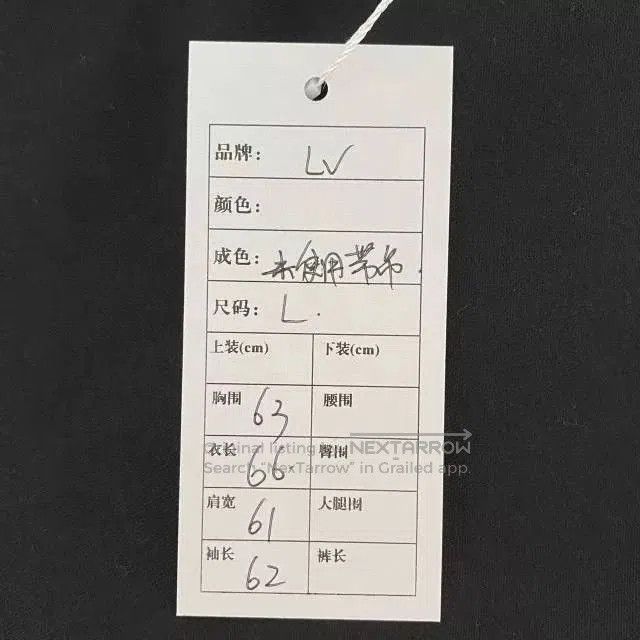 品牌: LV
颜色:
成色: 未使用带吊.
尺码: L.
上装(cm) 下装(cm)
胸围 63 腰围
衣长 66 臀围
Original listing by NEXTARROW
Search "NexTarrow" in Grailed app.
肩宽 61 大腿围
袖长 62 裤长